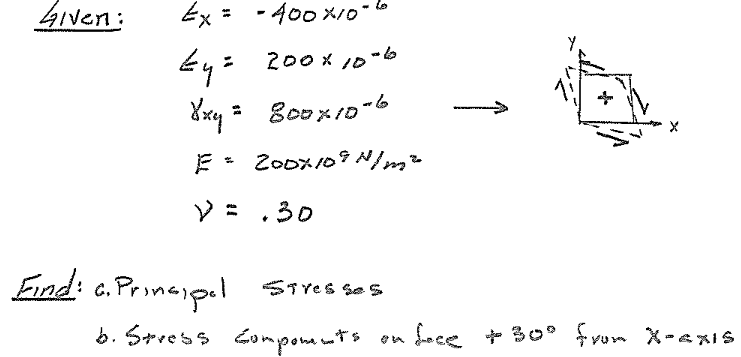 Given: εx = -400 x 10^-6
εy = 200 x 10^-6
γxy = 800 x 10^-6
E = 200 x 10^9 N/m^2
ν = .30
y
+
x
Find: a. Principal Stresses
b. Stress Components on face +30° from X-axis